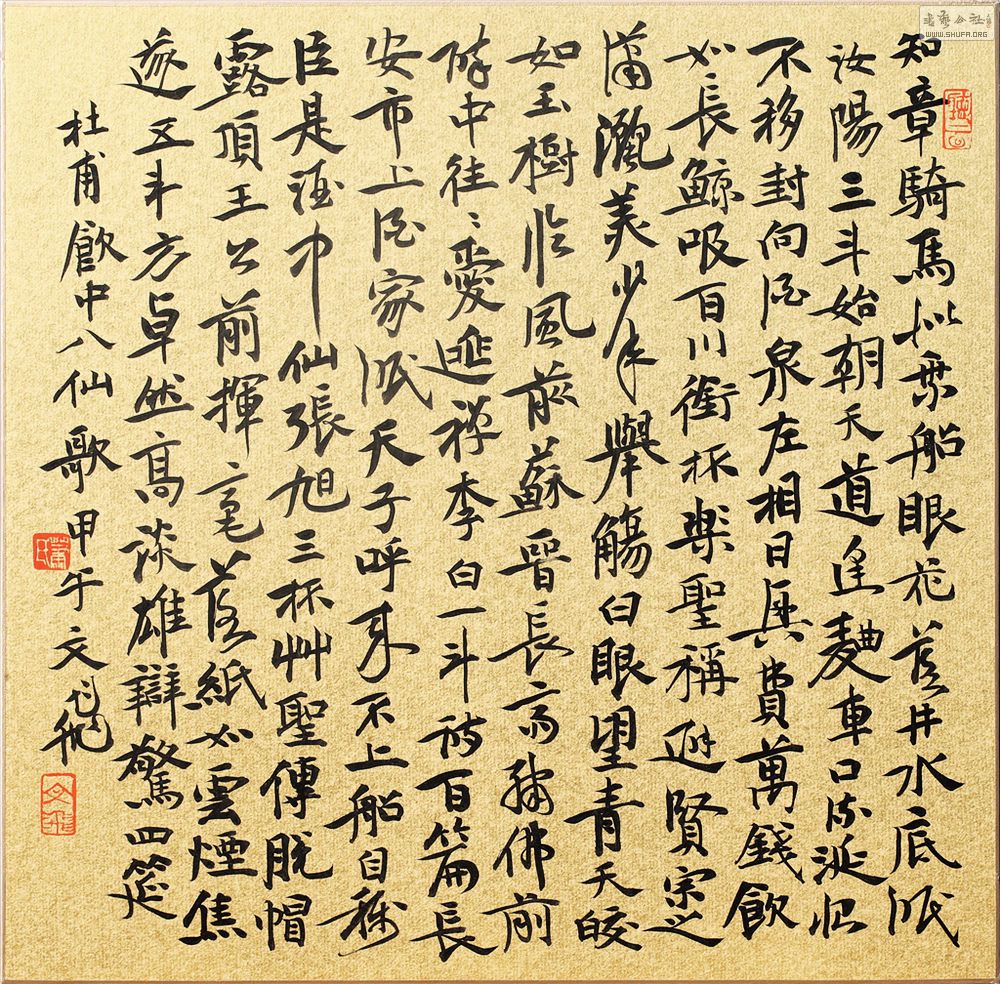 书艺公社
WWW.SHUFA.ORG
知章騎馬似乗船眼花落井水底眠
汝陽三斗始朝天道逢麯車口流涎恨
不移封向酒泉左相日興費萬錢飲
如長鯨吸百川銜杯樂聖稱避賢宗之
瀟灑美少年舉觴白眼望青天皎
如玉樹臨風前蘇晉長齋繡佛前
醉中往〻愛逃禅李白一斗詩百篇長
安市上酒家眠天子呼来不上船自稱
臣是酒中仙張旭三杯艸聖傳脫帽
露頂王公前揮毫落紙如雲煙焦
遂五斗方卓然高談雄辯驚四筵
杜甫飲中八仙歌甲午文飛
文飛